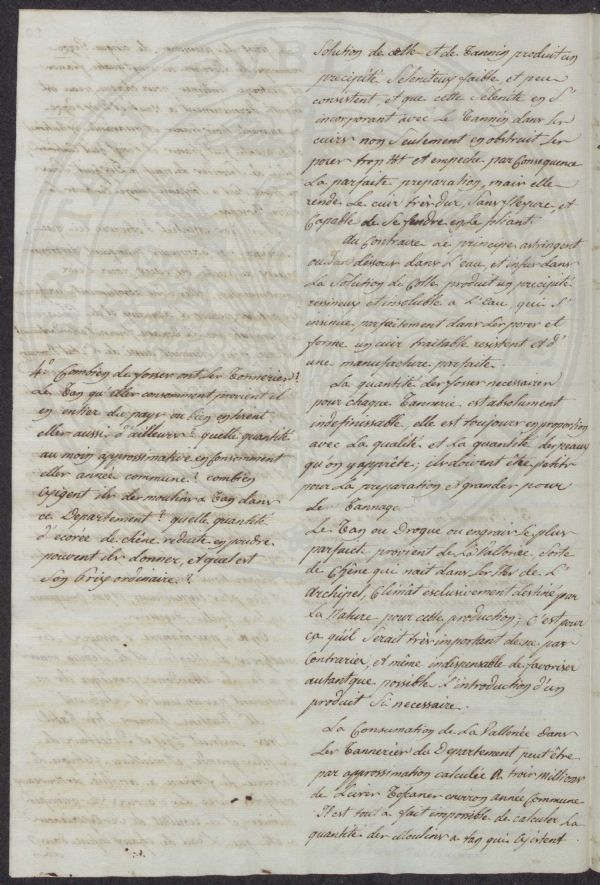 4.° Combien de fosses ont les Tanneries?
Le Tan qu'elles consomment provient il
en entier du pays ou bien en tirent
elles aussi d'ailleurs? quelle quantité
au moin approssimative en consomment
elles année commune? combien
Exigent ils des moulins a Tan dans
ce Departement? quelle quantité
d'ecorce de chêne reduite en poudre
peuvent ils donner, et quel est
Son prix ordinaire?
Solution de colle et de Tannin produit un
precipité Seleniteux faible et peu
consistent, et que cette Sélenite en S'
incorporant avec le Tannin dans les
cuirs non Seulement en obstruit les
pores trop tôt et empeche par Consequence
La parfaite preparation, mais elle
rende Le cuir très dur, Sans et
Capable de Se fendre en le pliant.
Au Contraire Le principe astringent
ou Tan dissous dans L'eau, et infus dans
La Solution de Colle produit un precipité
resineux et insoluble a L'eau, qui S'
insinue parfaitement dans Les pores et
forme un cuir traitable resistent et d'
une manufacture parfaite.
La quantité des fosses necessaires
pour chaque Tannerie est absolument
indefinissable, elle est toujours en proportion
avec La qualité et La quantité des peaux
qu'on y apprête; ils doivent être petits
pour La preparation et grandes pour
Le Tannage.
Le Tan ou Drogue ou engrais Le plus
parfait provient de La Vallonée, Sorte
de Chêne qui nait dans Les Iles de L'
Archipel, Climât exclusivement destiné par
La Nature pour cette production; C'est pour
ça quil Serait très important de ne pas
Contrarier, et même indispensable de favoriser
autant que possible L'introduction d'un
produit Si necessaire.
La Consumation de La Vallonée dans
Les Tanneries du Departement peut être
par approssimation calculée a trois millions
de Livres Toscanes environ année Commune
Il est tout a fait impossible de calculer La
quantité des Moulins a tan qui Existent